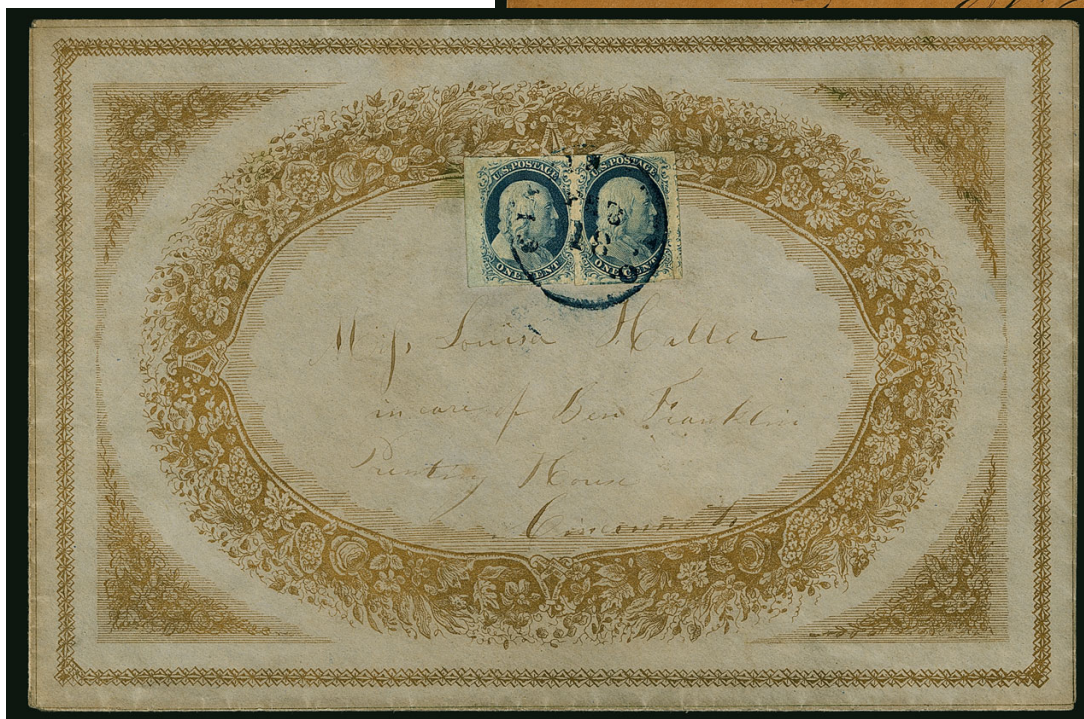 U.S. POSTAGE U.S. POSTAGE
ONE CENT ONE CENT
Miss Louisa Haller
in care of Ben Franklin
Printing House
Cincinnati